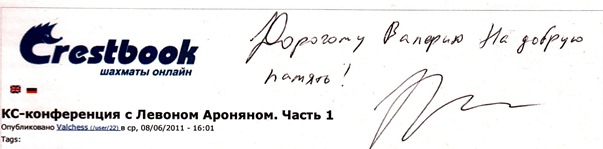 Дорогому Валерию На добрую
память!
Crestbook
шахматы онлайн
КС-конференция с Левоном Ароняном. Часть 1
Опубликовано Valchess (/user/22) в ср, 08/06/2011 - 16:01
Tags: